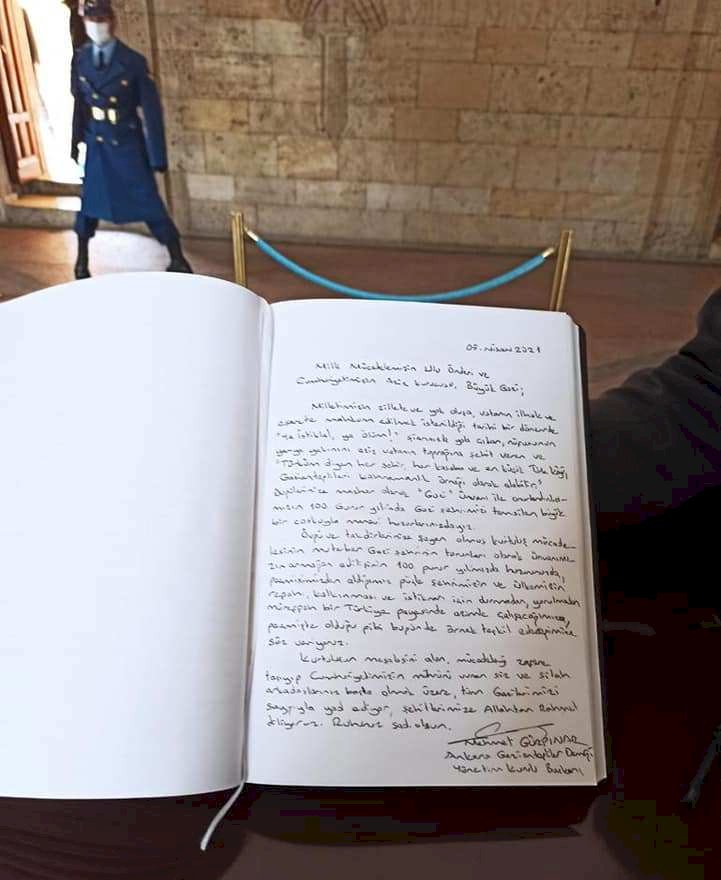 05. Nisan 2021
Milli Mücadelemizin Ulu Önderi ve
Cumhuriyetimizin aziz kurucusu, Büyük Gazi;
Milletimizin zillete ve yok oluşa, vatanın ilhak ve
esarete mahkum edilmek istenildiği tarihi bir dönemde
"Ya istiklal, ya ölüm!" şiarınızla yola çıkan, nüfusunun
yarıya yakınını aziz vatan toprağına şehit veren ve
"Türküm diyen her şehir, her kasaba ve en küçük Türk köyü,
Gaziantepliler kahramanlık örneği olarak alabilir."
mazhar olarak "Gazi" Ünvanı ile
mızın 100. Gurur yılında Gazi şehrimizi temsilen büyük
bir coşkuyla manevi huzurlarınızdayız.
Övgü ve takdirlerinize şayan olmuş kurtuluş mücade-
lesinin muteber Gazi şehrinin torunları olarak ünvanımı-
zın armağan edilişinin 100. gurur yılımızda huzurunuzda,
geçmişimizden aldığımız güçle şehrimizin ve ülkemizin
refahı, kalkınması ve istikrarı için durmadan, yorulmadan
müreffeh bir Türkiye gayesinde azimle çalışacağımıza,
geçmişte olduğu gibi bugünde örnek teşkil edeceğimize
söz veriyoruz.
Kurtuluşun meşalesini alan, mücadeleyi zafere
taşıyıp Cumhuriyetimizin mührünü vuran siz ve silah
arkadaşlarınız başta olmak üzere, tüm Gazilerimizi
saygıyla yad ediyor, şehitlerimize Allahtan Rahmet
diliyoruz. Ruhunuz şad olsun.
Mehmet GÜRPINAR
Ankara Gaziantepliler Derneği
Yönetim Kurulu Başkanı